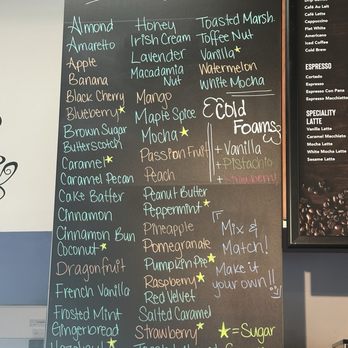 Almond
Amaretto
Apple
Banana
Black Cherry
Blueberry
Brown Sugar
Butterscotch
Caramel
Caramel Pecan
Cake Batter
Cinnamon
Cinnamon Bun
Coconut
Dragonfruit
French Vanilla
Frosted Mint
Gingerbread
Honey
Irish Cream
Lavender
Macadamia
Nut
Mango
Maple Spice
Mocha
Passion Fruit
Peach
Peanut Butter
Peppermint
Pineapple
Pomegranate
Pumpkin Pie
Raspberry
Red Velvet
Salted Caramel
Strawberry
Toasted Marsh.
Toffee Nut
Vanilla
Watermelon
White Mocha
Cold
Foams
+ Vanilla
+ Pistachio
+ Strawberry
"Mix &
Match!
Make it
your own!!"
= Sugar
Café Latte
Cappuccino
Flat White
Americano
Iced Coffee
Cold Brew
ESPRESSO
Cortado
Espresso
Espresso Con Pana
Espresso Macchiato
SPECIALITY
LATTE
Vanilla Latte
Caramel Macchiato
Mocha Latte
White Mocha Latte
Sesame Latte